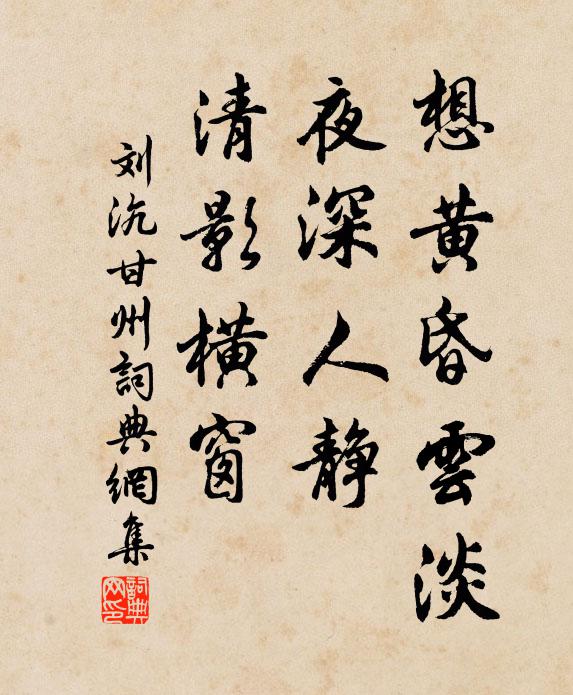 想黄昏雲淡
夜深人静
清影橫窗
刘沆甘州詞典網集
詞典网印